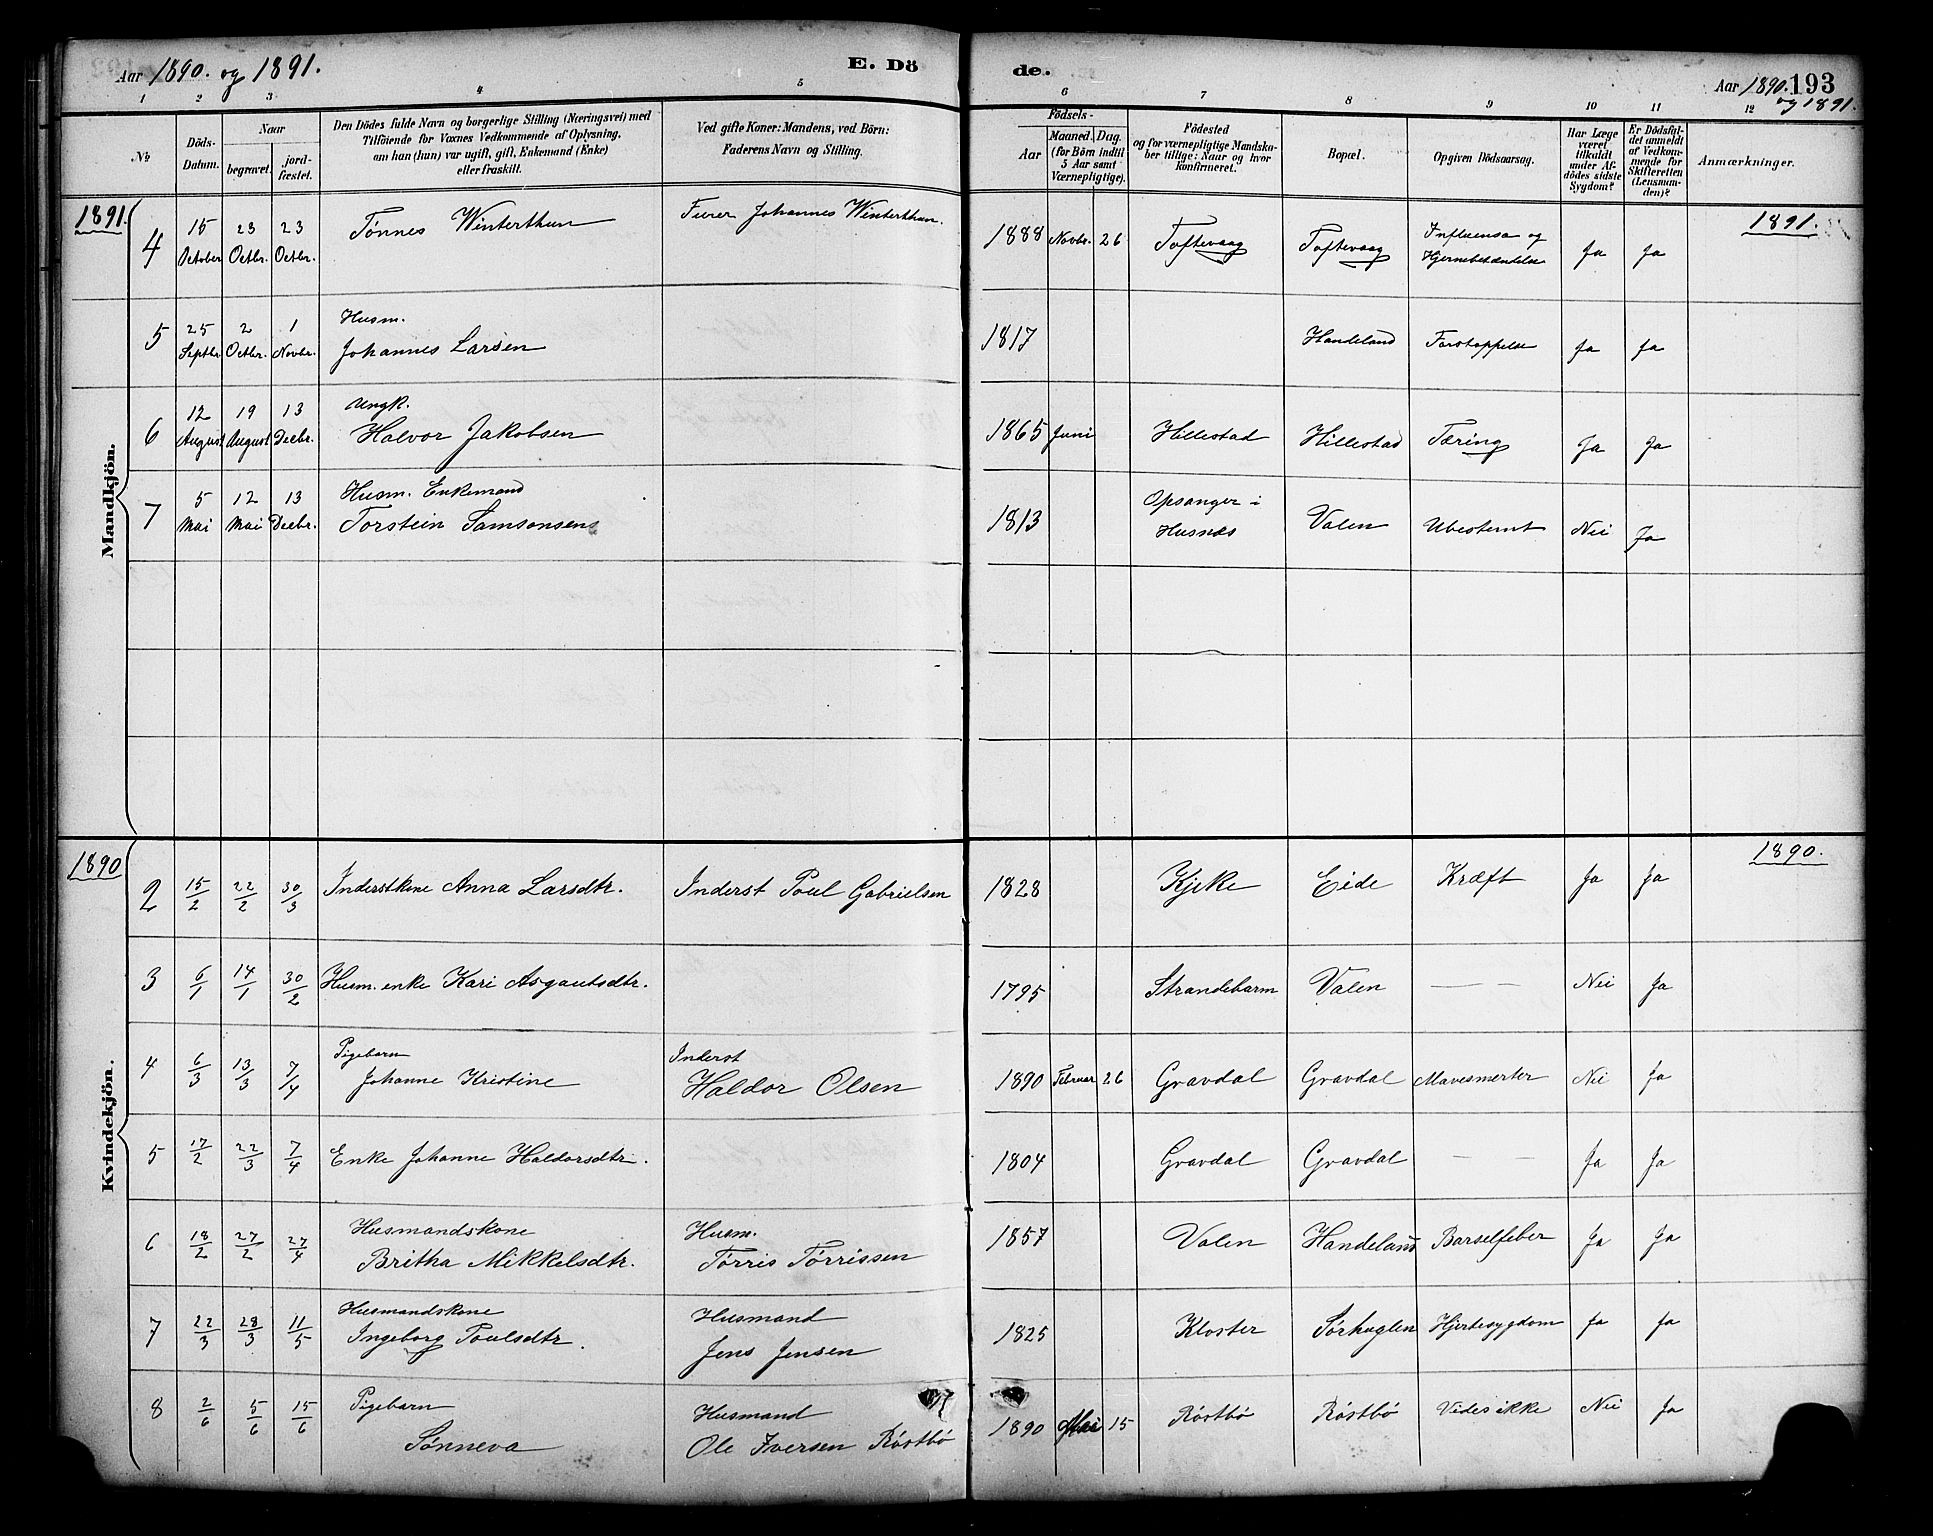 Aar 1890. og 1891.
E. Dö
de.
Aar 1890. 193
og 1891.
1 2 3 4 5 6 7 8 9 10 11 12
№
Döds-Datum.
Naar
begravet.
jord-fæstet.
Den Dödes fulde Navn og borgerlige Stilling (Næringsvei) med
Tilföiende for Voxnes Vedkommende af Oplysning,
om han (hun) var ugift, gift, Enkemand (Enke)
eller fraskilt.
Ved gifte Koner: Mandens, ved Börn:
Faderens Navn og Stilling.
Födsels-
Aar
Maaned. Dag.
(for Börn indtil
5 Aar samt
Værnepligtige).
Födested
og for værnepligtige Mandska-
ber tillige: Naar og hvor
konfirmeret.
Bopæl.
Opgiven Dödsaarsag.
Har Læge
været
tilkaldt
under Af-
dödes sidste
Sygdom?
Er Dödsfal-
det anmeldt
af Vedkom-
mende for
Skifteretten
(Lensman-
den)?
Anmærkninger.
Mandkjön.
1891.
1891.
4 15 October 23 Octbr. 23 Octbr. Tønnes Winterthun Furer Johannes Winterthun. 1888 Novbr. 26 Toftevaag Toftevaag Influensa og Hjernebetændelse Ja Ja
5 25 Septbr 2 Octbr. 1 Novbr. Husm. Johannes Larsen 1817 Handeland Forstoppelse Ja Ja
6 12 August 19 August 13 Decbr. Ungk. Halvor Jakobsen 1865 Juni Hillestad Hillestad Tæring Ja Ja
7 5 Mai 12 Mai 13 Decbr. Husm. Enkemand Torstein Samsonsens 1813 Opsanger i Husnæs Valen Ubestemt Nei Ja
Kvindekjön.
1890
1890.
2 15/2 22/2 30/3 Inderstkone Anna Larsdtr. Inderst Poul Gabrielsen 1828 Kjeke Eide Kræft Ja Ja
3 6/1 14/1 30/2 Husm. enke Kari Asgautsdtr. 1795 Strandebarm Valen — — Nei Ja
4 6/3 13/3 7/4 Pigebarn Johanne Kristine Inderst Haldor Olsen 1890 Februar 26 Gravdal Gravdal Mavesmerter Nei Ja
5 17/2 22/3 7/4 Enke Johanne Haldorsdtr. 1804 Gravdal Gravdal — — Ja Ja
6 18/2 27/2 27/4 Husmandskone Britha Mikkelsdtr. Husm. Tørris Tørrissen 1857 Valen Handeland Barselfeber Ja Ja
7 22/3 28/3 11/5 Husmandskone Ingeborg Poulsdtr. Husmand Jens Jensen 1825 Kloster Sørhuglen Hjertesygdom Ja Ja
8 2/6 5/6 15/6 Pigebarn Sønneva Husmand Ole Iversen Røstbø 1890 Mai 15 Røstbø Røstbø Vides ikke Nei Ja